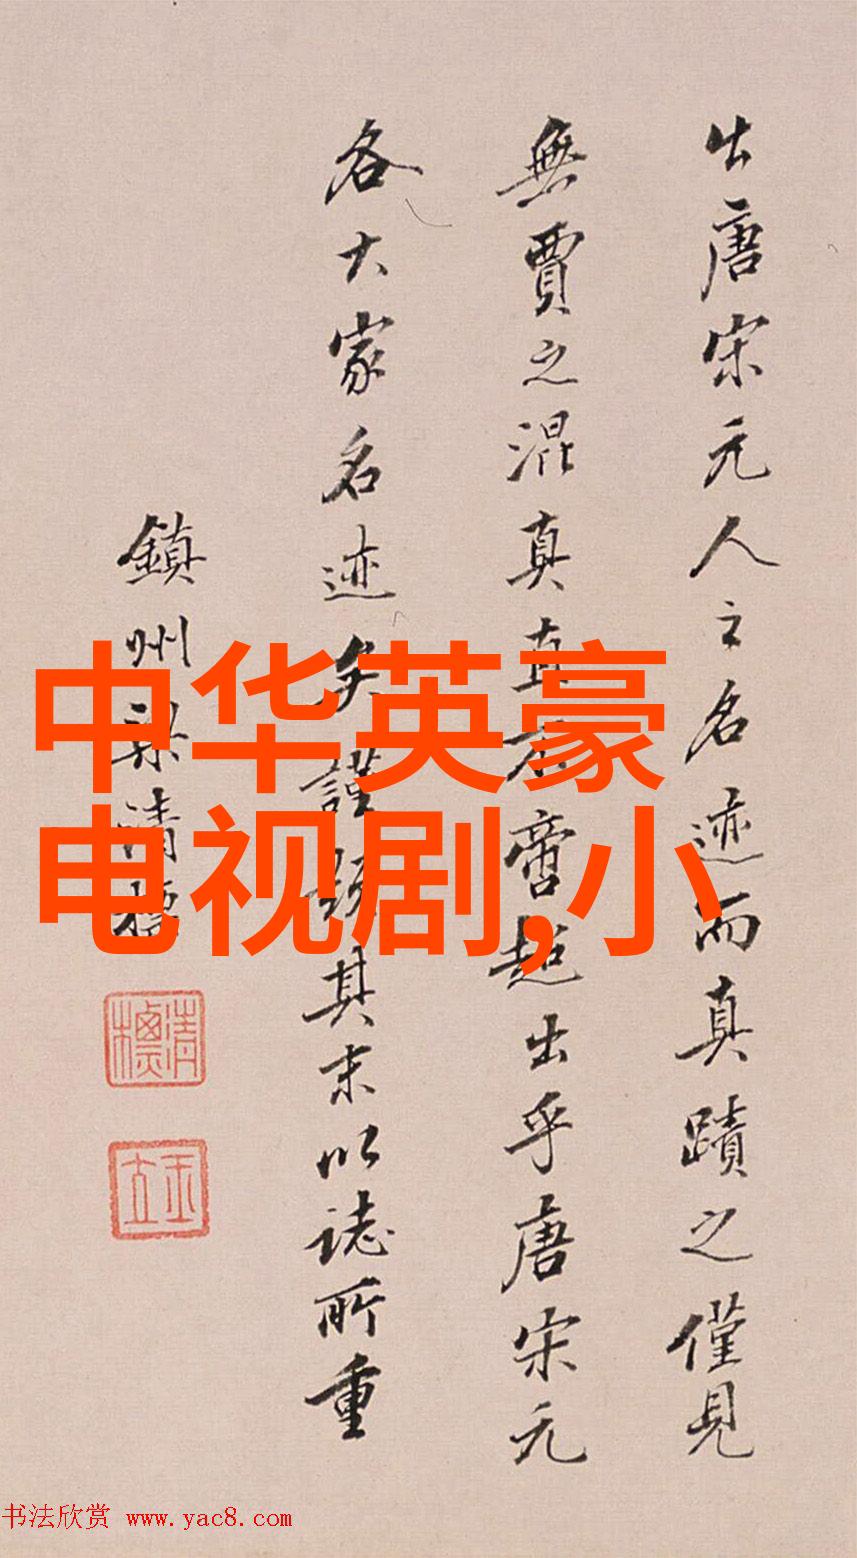 出唐宋元人之名迹而真蹟之僅見
無賈之混真真不啻超出乎唐宋元
各大家名迹矣謹其末以誌所重
鎮州梁清標
清標
玉立
中华英豪
电视剧,小
书法欣赏 www.yac8.com